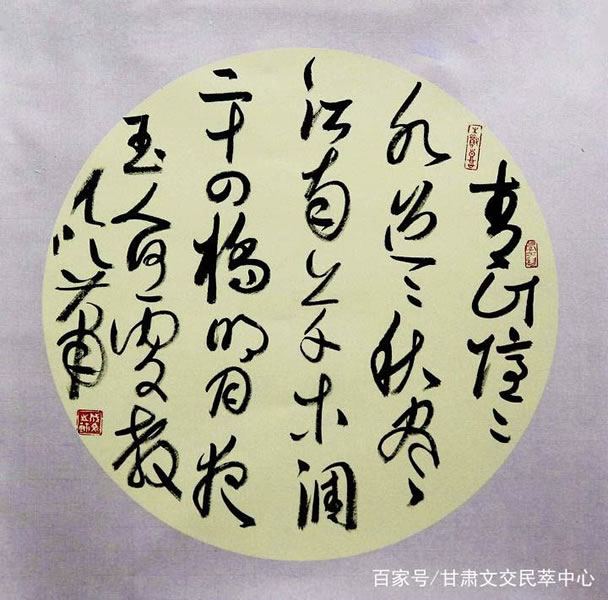 青山隐〻
水迢〻秋尽
江南草木凋
二十四橋明月夜
玉人何處教
吹簫
百家号/甘肃文交民萃中心